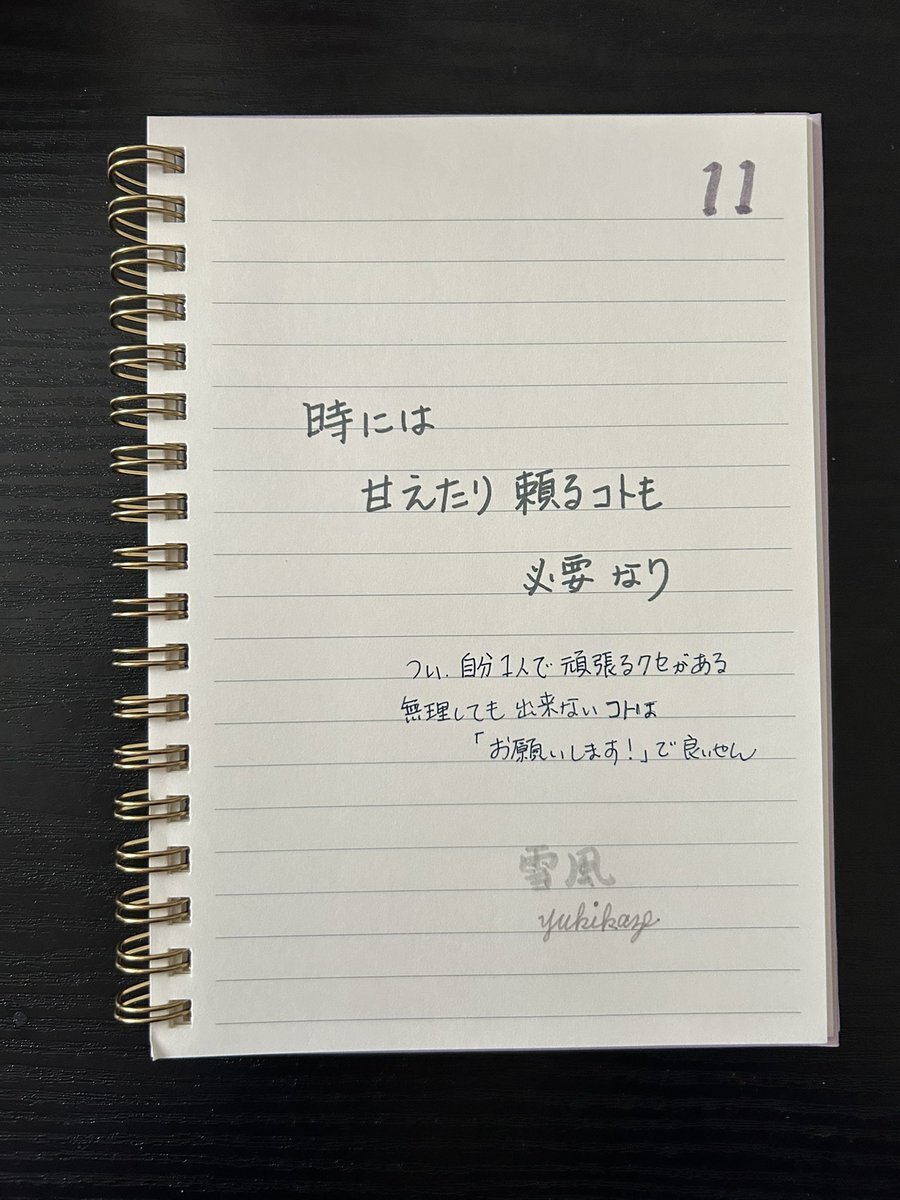 11
時には
甘えたり 頼るコトも
必要 なり
つい、自分1人で 頑張るクセがある
無理しても 出来ないコトは
「お願いします！」で 良いやん
雪風
yukikaze